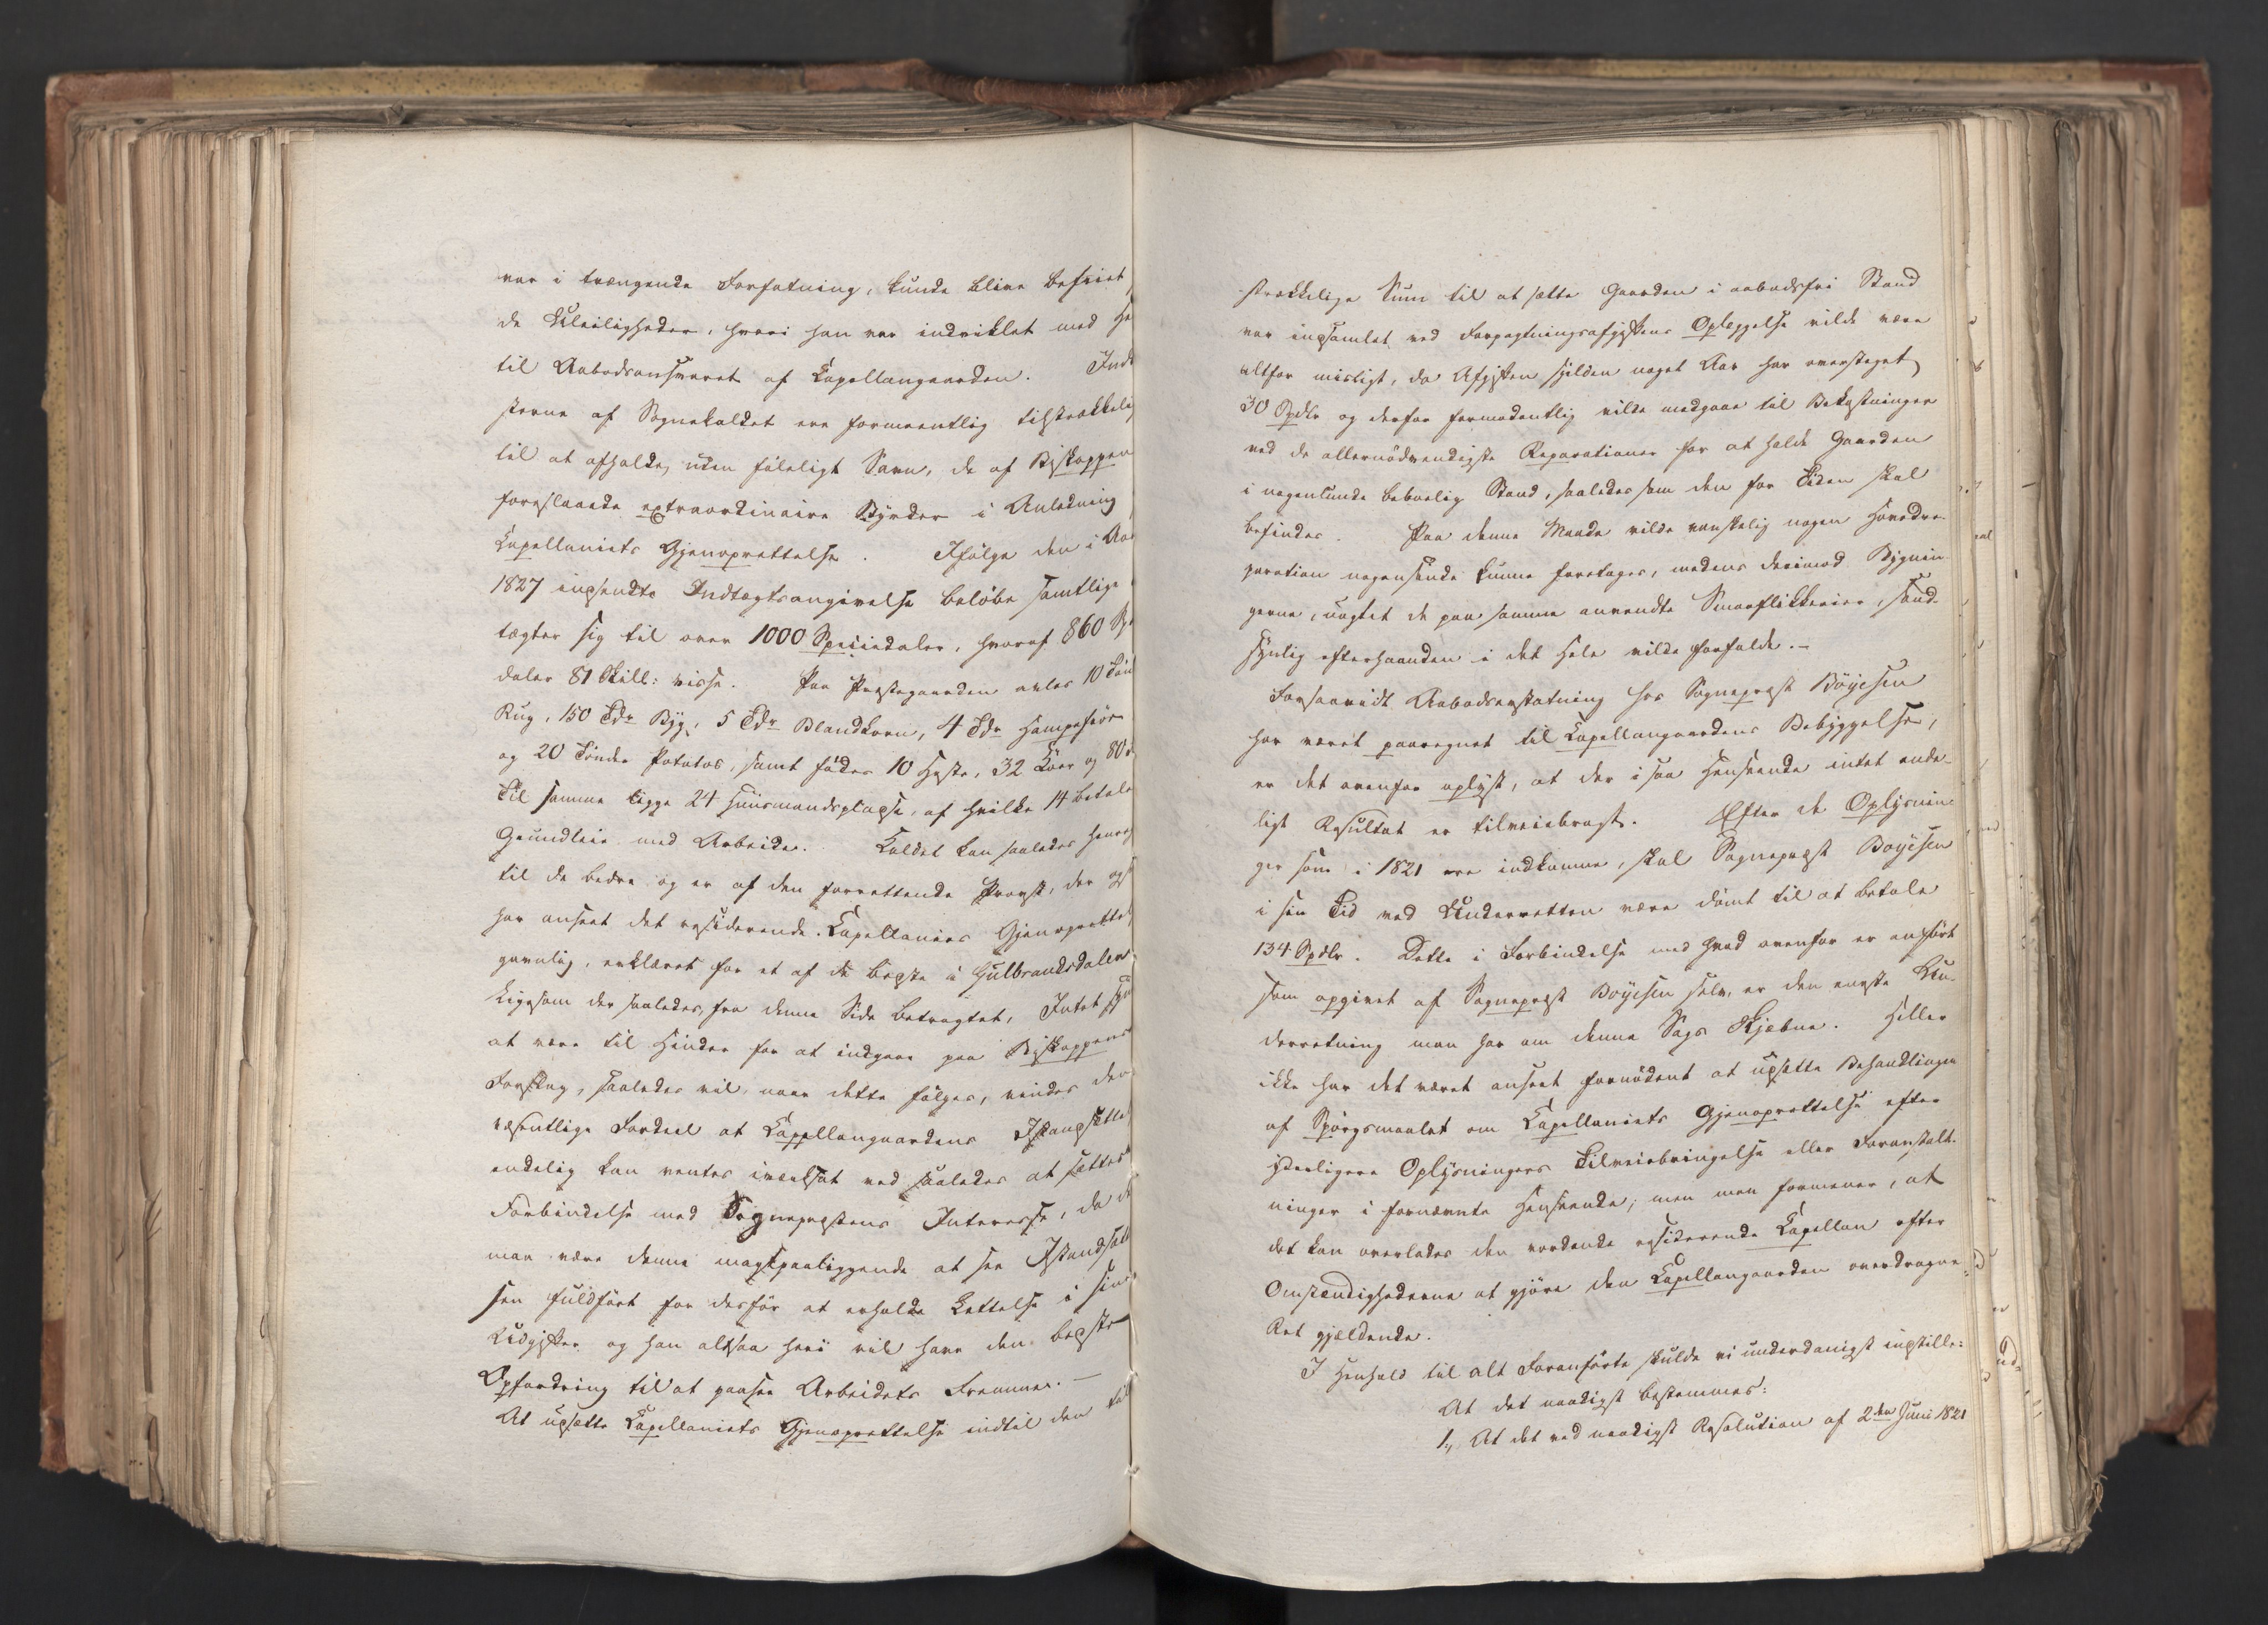 var i trængende Forfatning, kunde blive befriet
de Uleiligheder, hvori han var indviklet med He
til Aabodsansvaret af Capellangaarden. Ind
terne af Sognekaldet ere formeentlig tilstrækkeli
til at afholde, uden føleligt Savn, de af Biskoppen
foreslaaede extraordinaire Byrder i Anledning
Capellaniets Gjenoprettelse. Ifølge den i Aar
1827 indsendte Indtægtsangivelse beløbe samtlige
tægter sig til over 1000 Speciedaler, hvoraf 860 Sp
daler 81 Skill: visse. Paa Præstegaarden avles 10 Tøn
Rug, 150 Tdr Byg, 5 Tdr Blandkorn, 4 Tdr Hampefrøe
og 20 Tønder Potatos, samt fødes 10 Heste, 32 Køer og 80
Til samme ligge 24 Huusmandspladse, af hvilke 14 betale
Grundleie med Arbeide. Kaldet kan saaledes henreg
til de bedre og er af den forrettende Provst, der og
har anseet det residerende Capellanies Gjenoprettel
gavnlig, erklæret for et af de bedste i Gulbrandsdalen
Ligesom der saaledes, fra denne Side betragtet, Intet syn
at være til Hinder for at indgaae paa Biskoppens
Forslag, saaledes vil, naar dette følges, vindes den
væsentlige Fordeel at Capellangaardens Istandsætte
endelig kan ventes iværksat ved saaledes at sættes
Forbindelse med Sognepræstens Interesse, da d
maa være denne magtpaaliggende at see Istandsæt
sen fuldført for derfor at erholde Lettelse i sine
Udgifter og han altsaa heri vil have den bedste
Opfordring til at paasee Arbeidets Fremme. —
At udsætte Capellaniets Gjenoprettelse indtil den til
strækkelige Sum til at sætte Gaarden i aabodsfri Stand
var indsamlet ved Forpagtningsafgiftens Oplæggelse vilde være
altfor misligt, da Afgiften sjelden noget Aar har oversteget
30 Spdlr og derfor formodentlig vilde medgaae til Bekostninger
ved de allernødvendigste Reparationer for at holde Gaarden
i nogenlunde beboelig Stand, saaledes som den for Tiden skal
befindes. Paa denne Maade vilde vanskelig nogen Hovedre-
paration nogensinde kunne foretages, medens derimod Bygnin-
gerne, uagtet de paa samme anvendte Smaaflikkerier, sand-
synlig efterhaanden i det Hele vilde forfalde. —
Forsaavidt Aabodserstatning hos Sognepræst Böyesen
har været paaregnet til Capellangaardens Bebyggelse,
er det ovenfor oplyst, at der i saa Henseende intet ende-
ligt Resultat er tilveiebragt. Efter de Oplysnin-
ger som i 1821 ere indkomne, skal Sognepræst Boyesen
i sin Tid ved Underretten være dømt til at betale
134 Spdlr. Dette i Forbindelse med hvad ovenfor er anført
som opgivet af Sognepræst Boyesen selv, er den eneste Un-
derretning man har om denne Sags Skjæbne. Heller
ikke har det været anseet fornødent at udsætte Behandlingen
af Spørgsmaalet om Capellaniets Gjenoprettelse efter
yderligere Oplysningers Tilveiebringelse eller Foranstalt-
ninger i fornævnte Henseende; men man formener, at
det kan overlades den vordende residerende Capellan efter
Omstændighederne at gjøre den Capellangaarden overdragne
Ret gjældende.
I Henhold til alt Foranførte skulde vi underdanigst indstille:
At det naadigst bestemmes:
1., At det ved naadigst Resolution af 2den Juni 1821